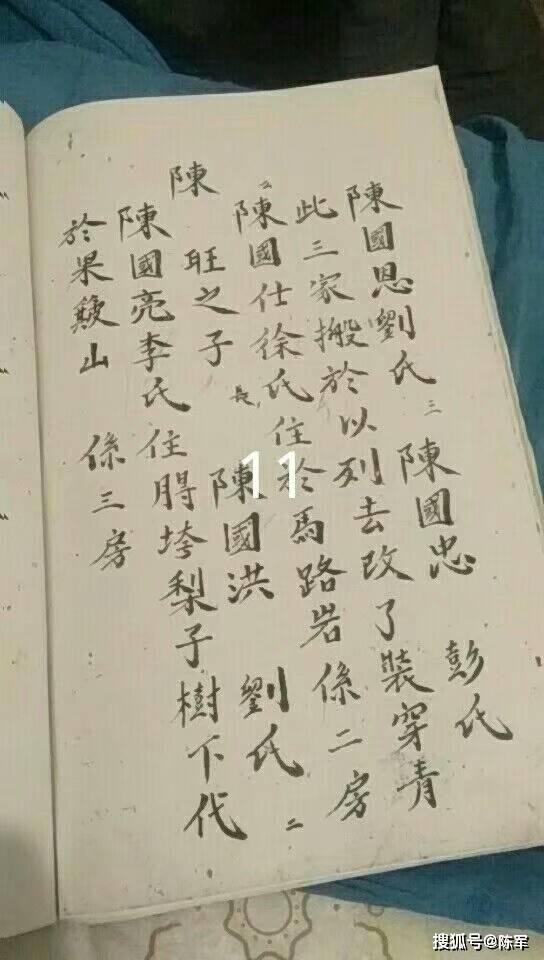 陳國恩劉氏 三 陳國忠 彭氏
此三家搬於以列去改了裝穿青
么 陳國仕徐氏住於馬路岩係二房
陳 旺之子 長 陳國洪 劉氏 二
陳國亮李氏住垮梨子樹下代
於果山 係三房
11
搜狐号@陈军